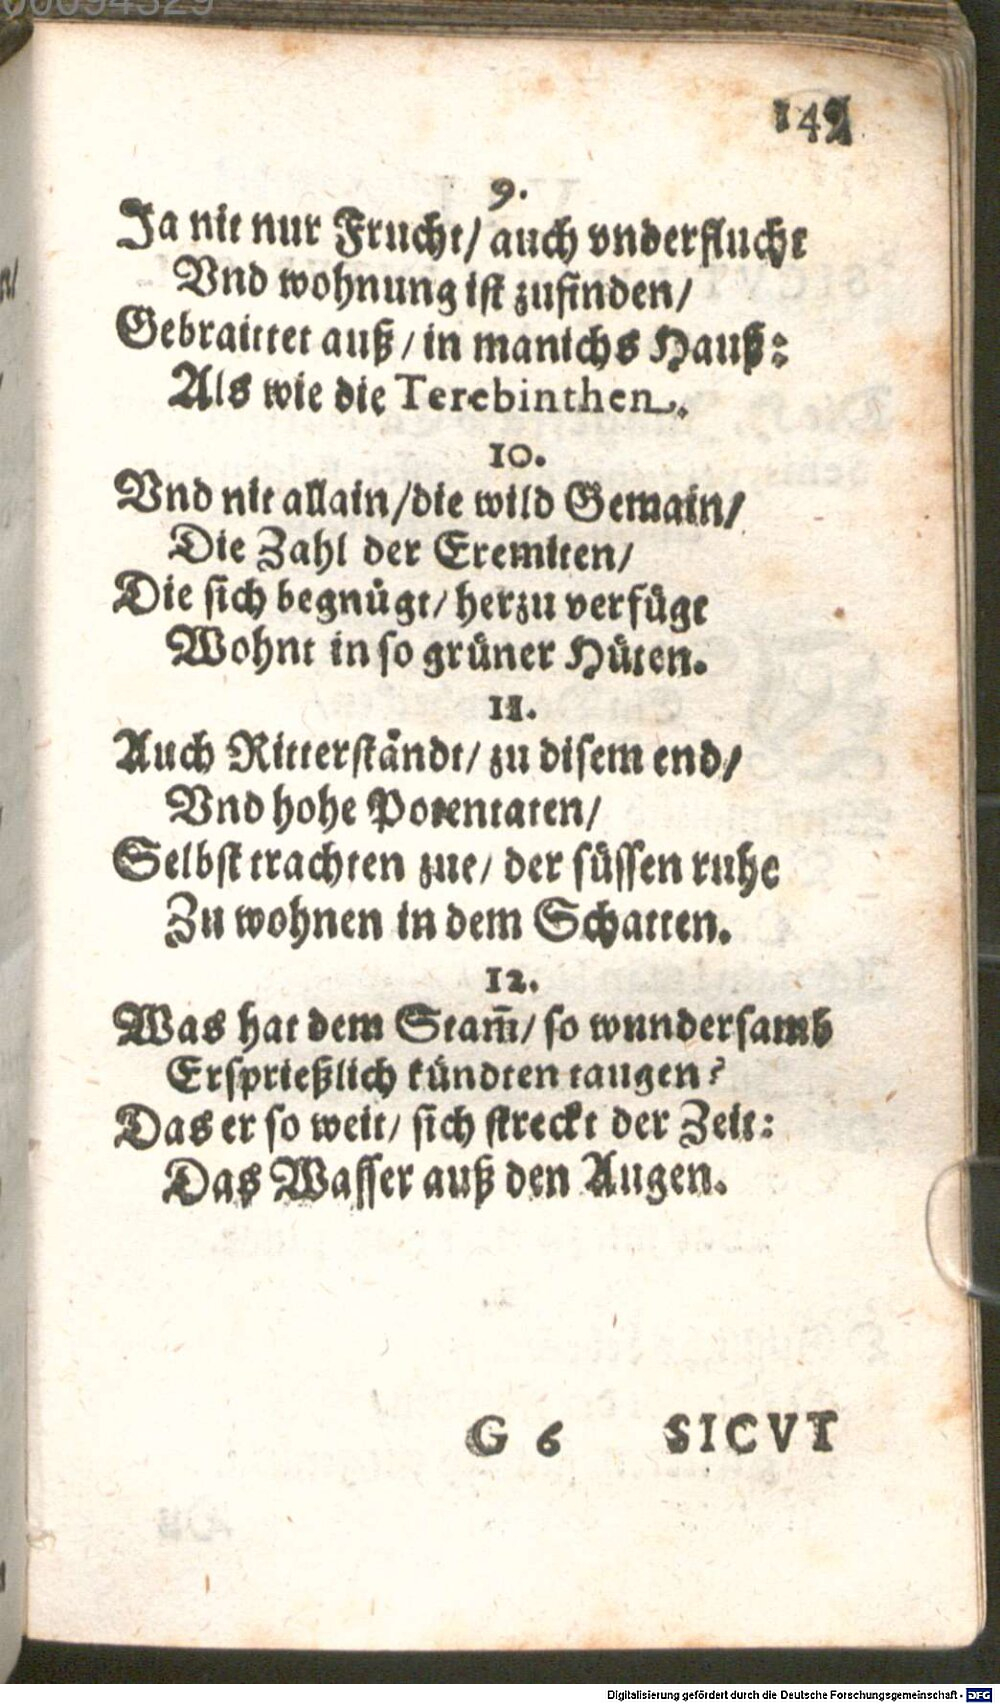 149
9.
Ja nit nur Frucht/ auch vnderflucht
Vnd wohnung ist zufinden/
Gebraittet auß/ in manichs Hauß:
Als wie die Terebinthen.
10.
Vnd nit allain/die wild Gemain/
Die Zahl der Eremiten/
Die sich begnügt/ herzu verfügt
Wohnt in so grüner Hüten.
11.
Auch Ritterständt/ zu disem end/
Vnd hohe Potentaten/
Selbst trachten zue/ der süssen ruhe
Zu wohnen in dem Schatten.
12.
Was hat dem Stam̃/ so wundersamb
Ersprießlich kündten taugen?
Das er so weit/ sich streckt der Zeit:
Das Wasser auß den Augen.
G 6 SICVT
Digitalisierung gefördert durch die Deutsche Forschungsgemeinschaft - DFG